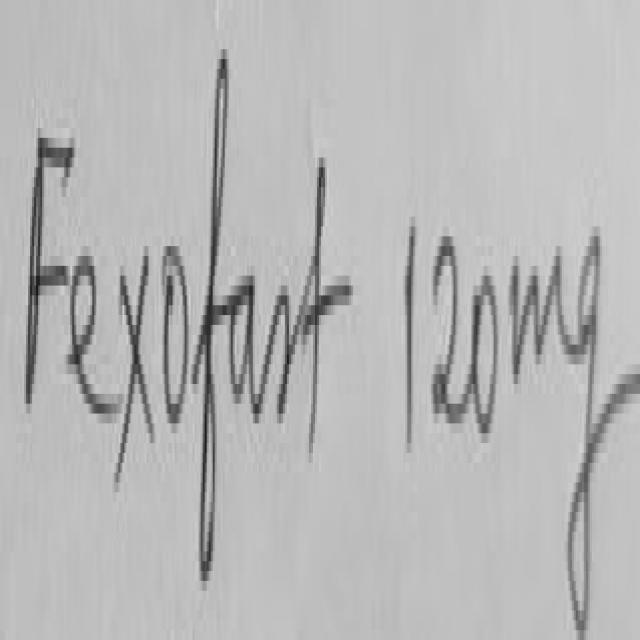 Fexofast 120mg